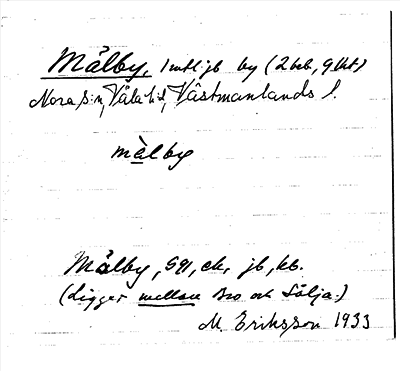 Målby, 1 mtl jb by (2 hb, 9 lht)
Nora s:n, Våla t:d, Västmanlands l.
målby
Målby, GQ, ek, jb, kb.
(Ligger mellan Bro och Sälja.)
M. Eriksson 1933